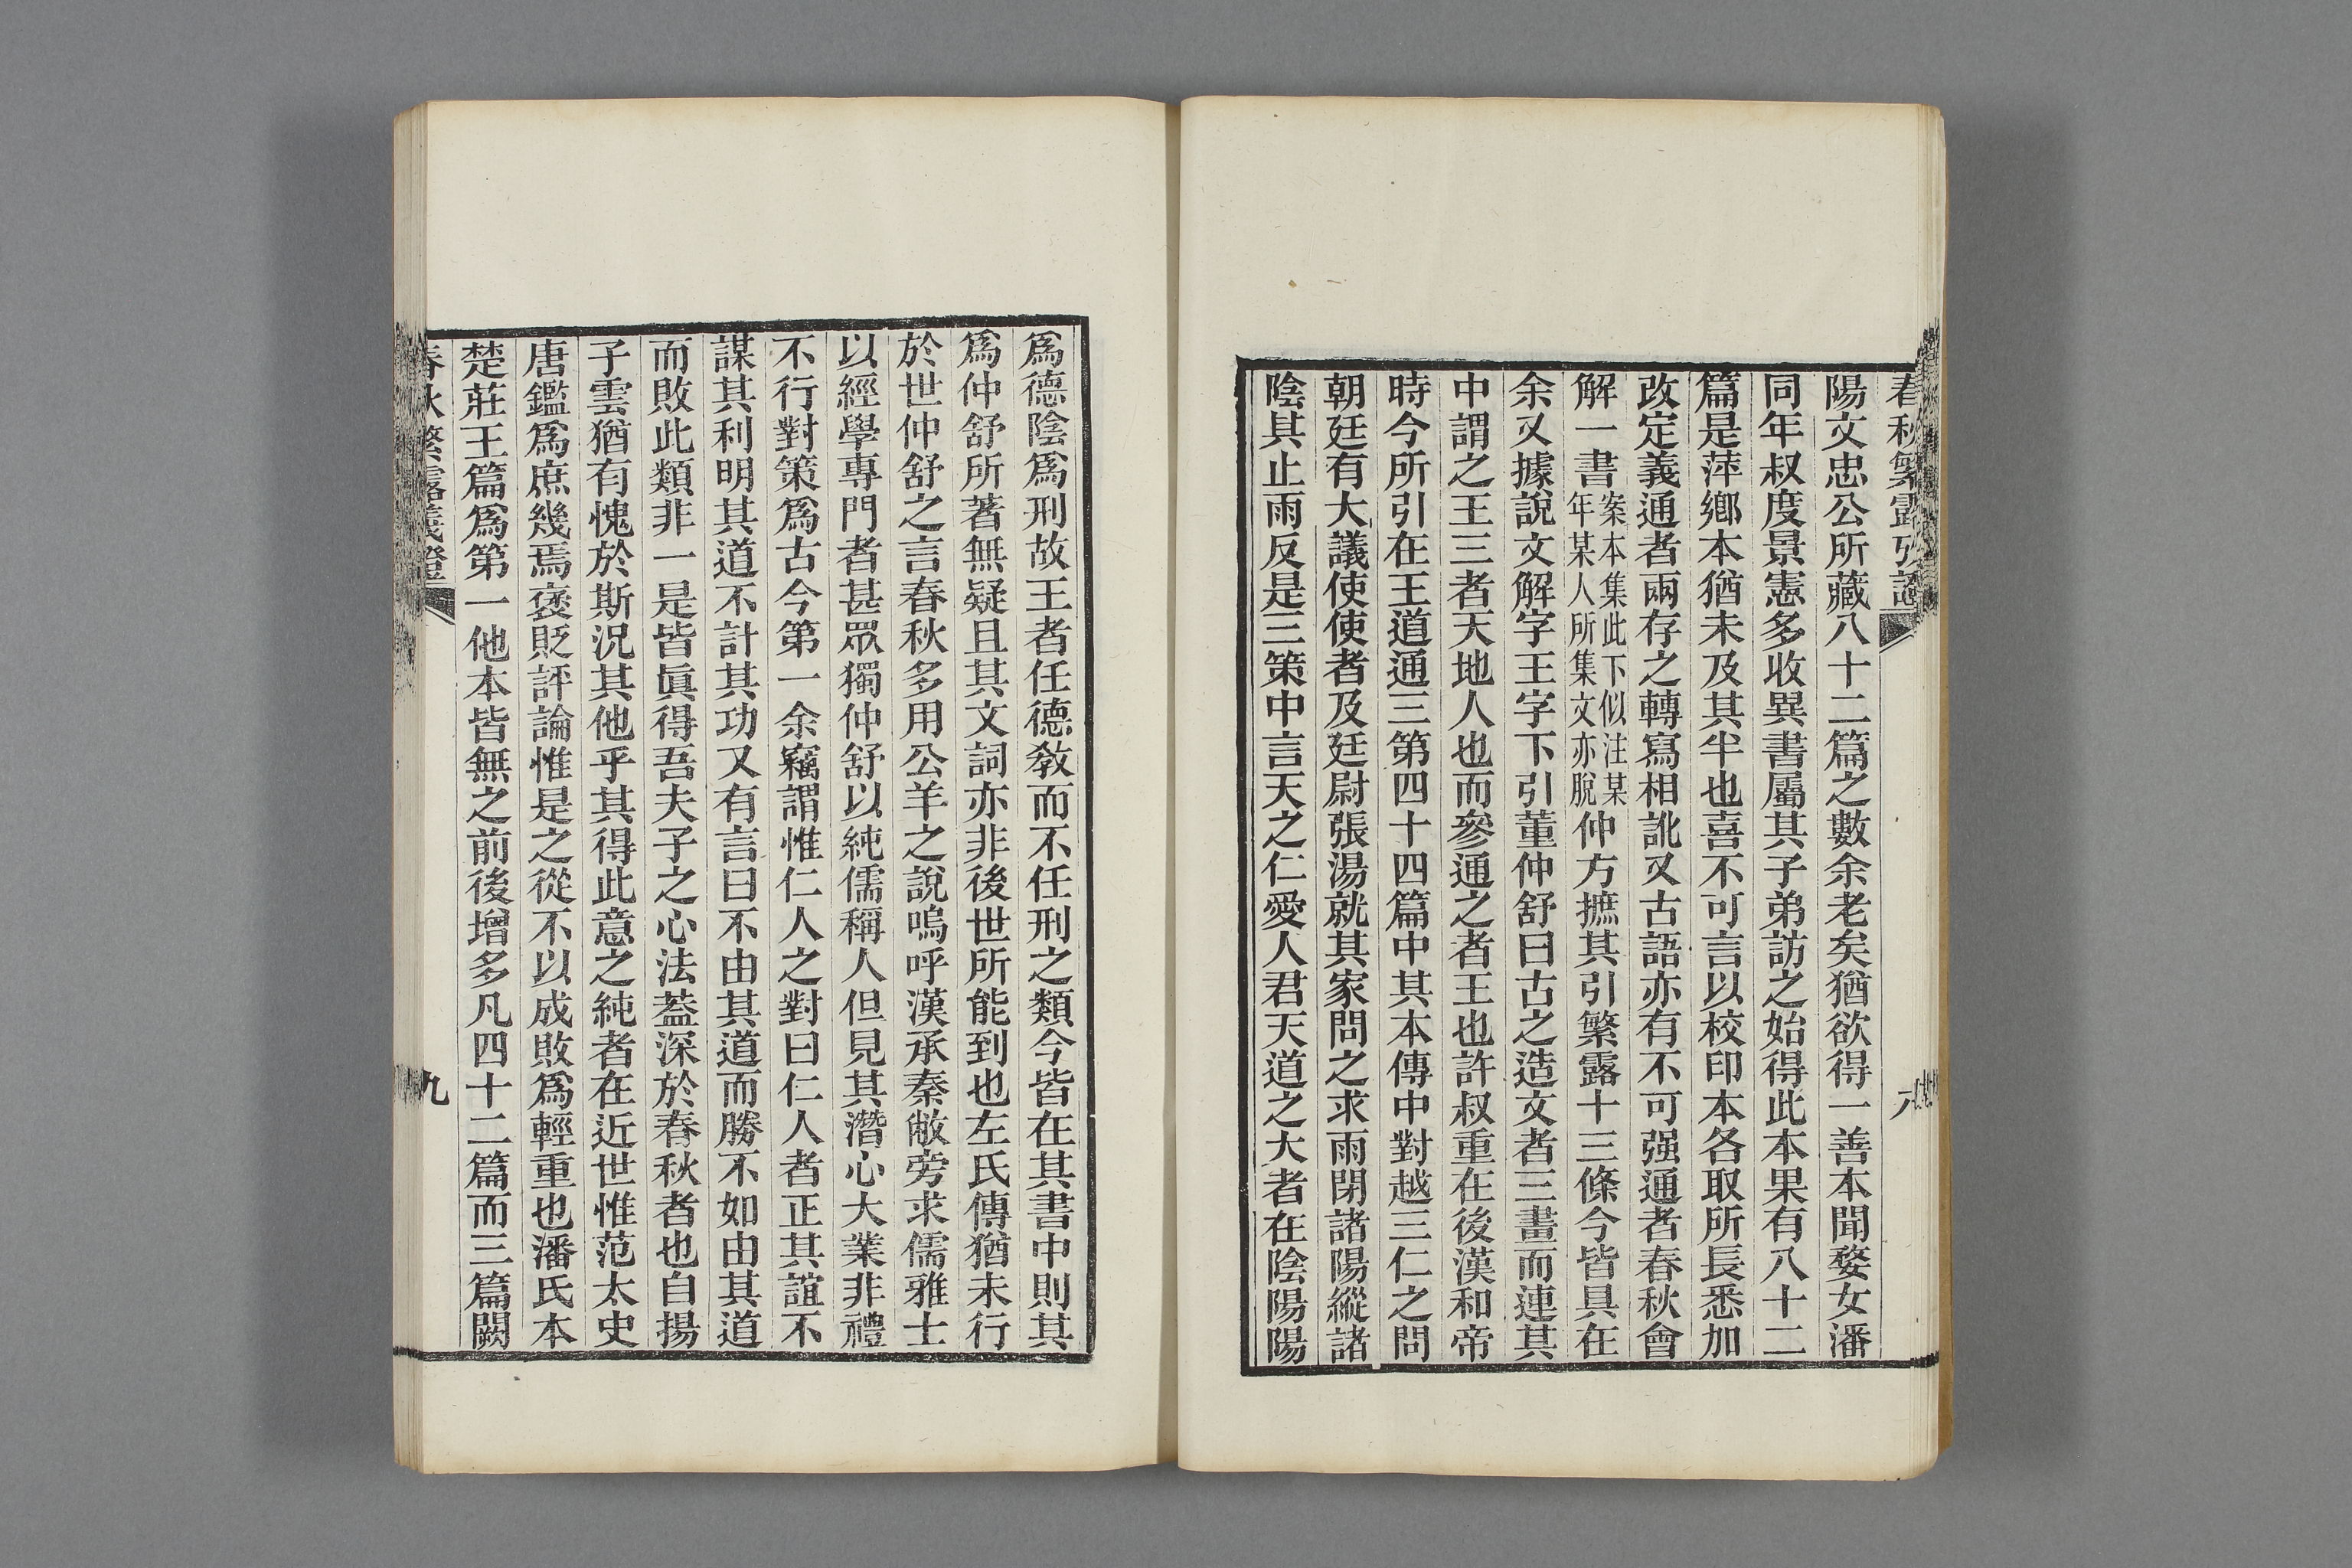 春秋繁露攷證
八
陽文忠公所藏八十二篇之數余老矣猶欲得一善本聞婺女潘
同年叔度景憲多收異書屬其子弟訪之始得此本果有八十二
篇是萍鄉本猶未及其半也喜不可言以校印本各取所長悉加
改定義通者兩存之轉寫相訛又古語亦有不可强通者春秋會
解一書案本集此下似注某年某人所集文亦脫仲方摭其引繁露十三條今皆具在
余又據說文解字王字下引董仲舒曰古之造文者三畫而連其
中謂之王三者天地人也而參通之者王也許叔重在後漢和帝
時今所引在王道通三第四十四篇中其本傳中對越三仁之問
朝廷有大議使使者及廷尉張湯就其家問之求雨閉諸陽縱諸
陰其止雨反是三策中言天之仁愛人君天道之大者在陰陽陽
爲德陰爲刑故王者任德敎而不任刑之類今皆在其書中則其
爲仲舒所著無疑且其文詞亦非後世所能到也左氏傳猶未行
於世仲舒之言春秋多用公羊之說嗚呼漢承秦敝旁求儒雅士
以經學專門者甚眾獨仲舒以純儒稱人但見其潛心大業非禮
不行對策爲古今第一余竊謂惟仁人之對曰仁人者正其誼不
謀其利明其道不計其功又有言曰不由其道而勝不如由其道
而敗此類非一是皆眞得吾夫子之心法葢深於春秋者也自揚
子雲猶有愧於斯況其他乎其得此意之純者在近世惟范太史
唐鑑爲庶幾焉褒貶評論惟是之從不以成敗爲輕重也潘氏本
楚莊王篇爲第一他本皆無之前後增多凡四十二篇而三篇闕
春秋繁露義證
九